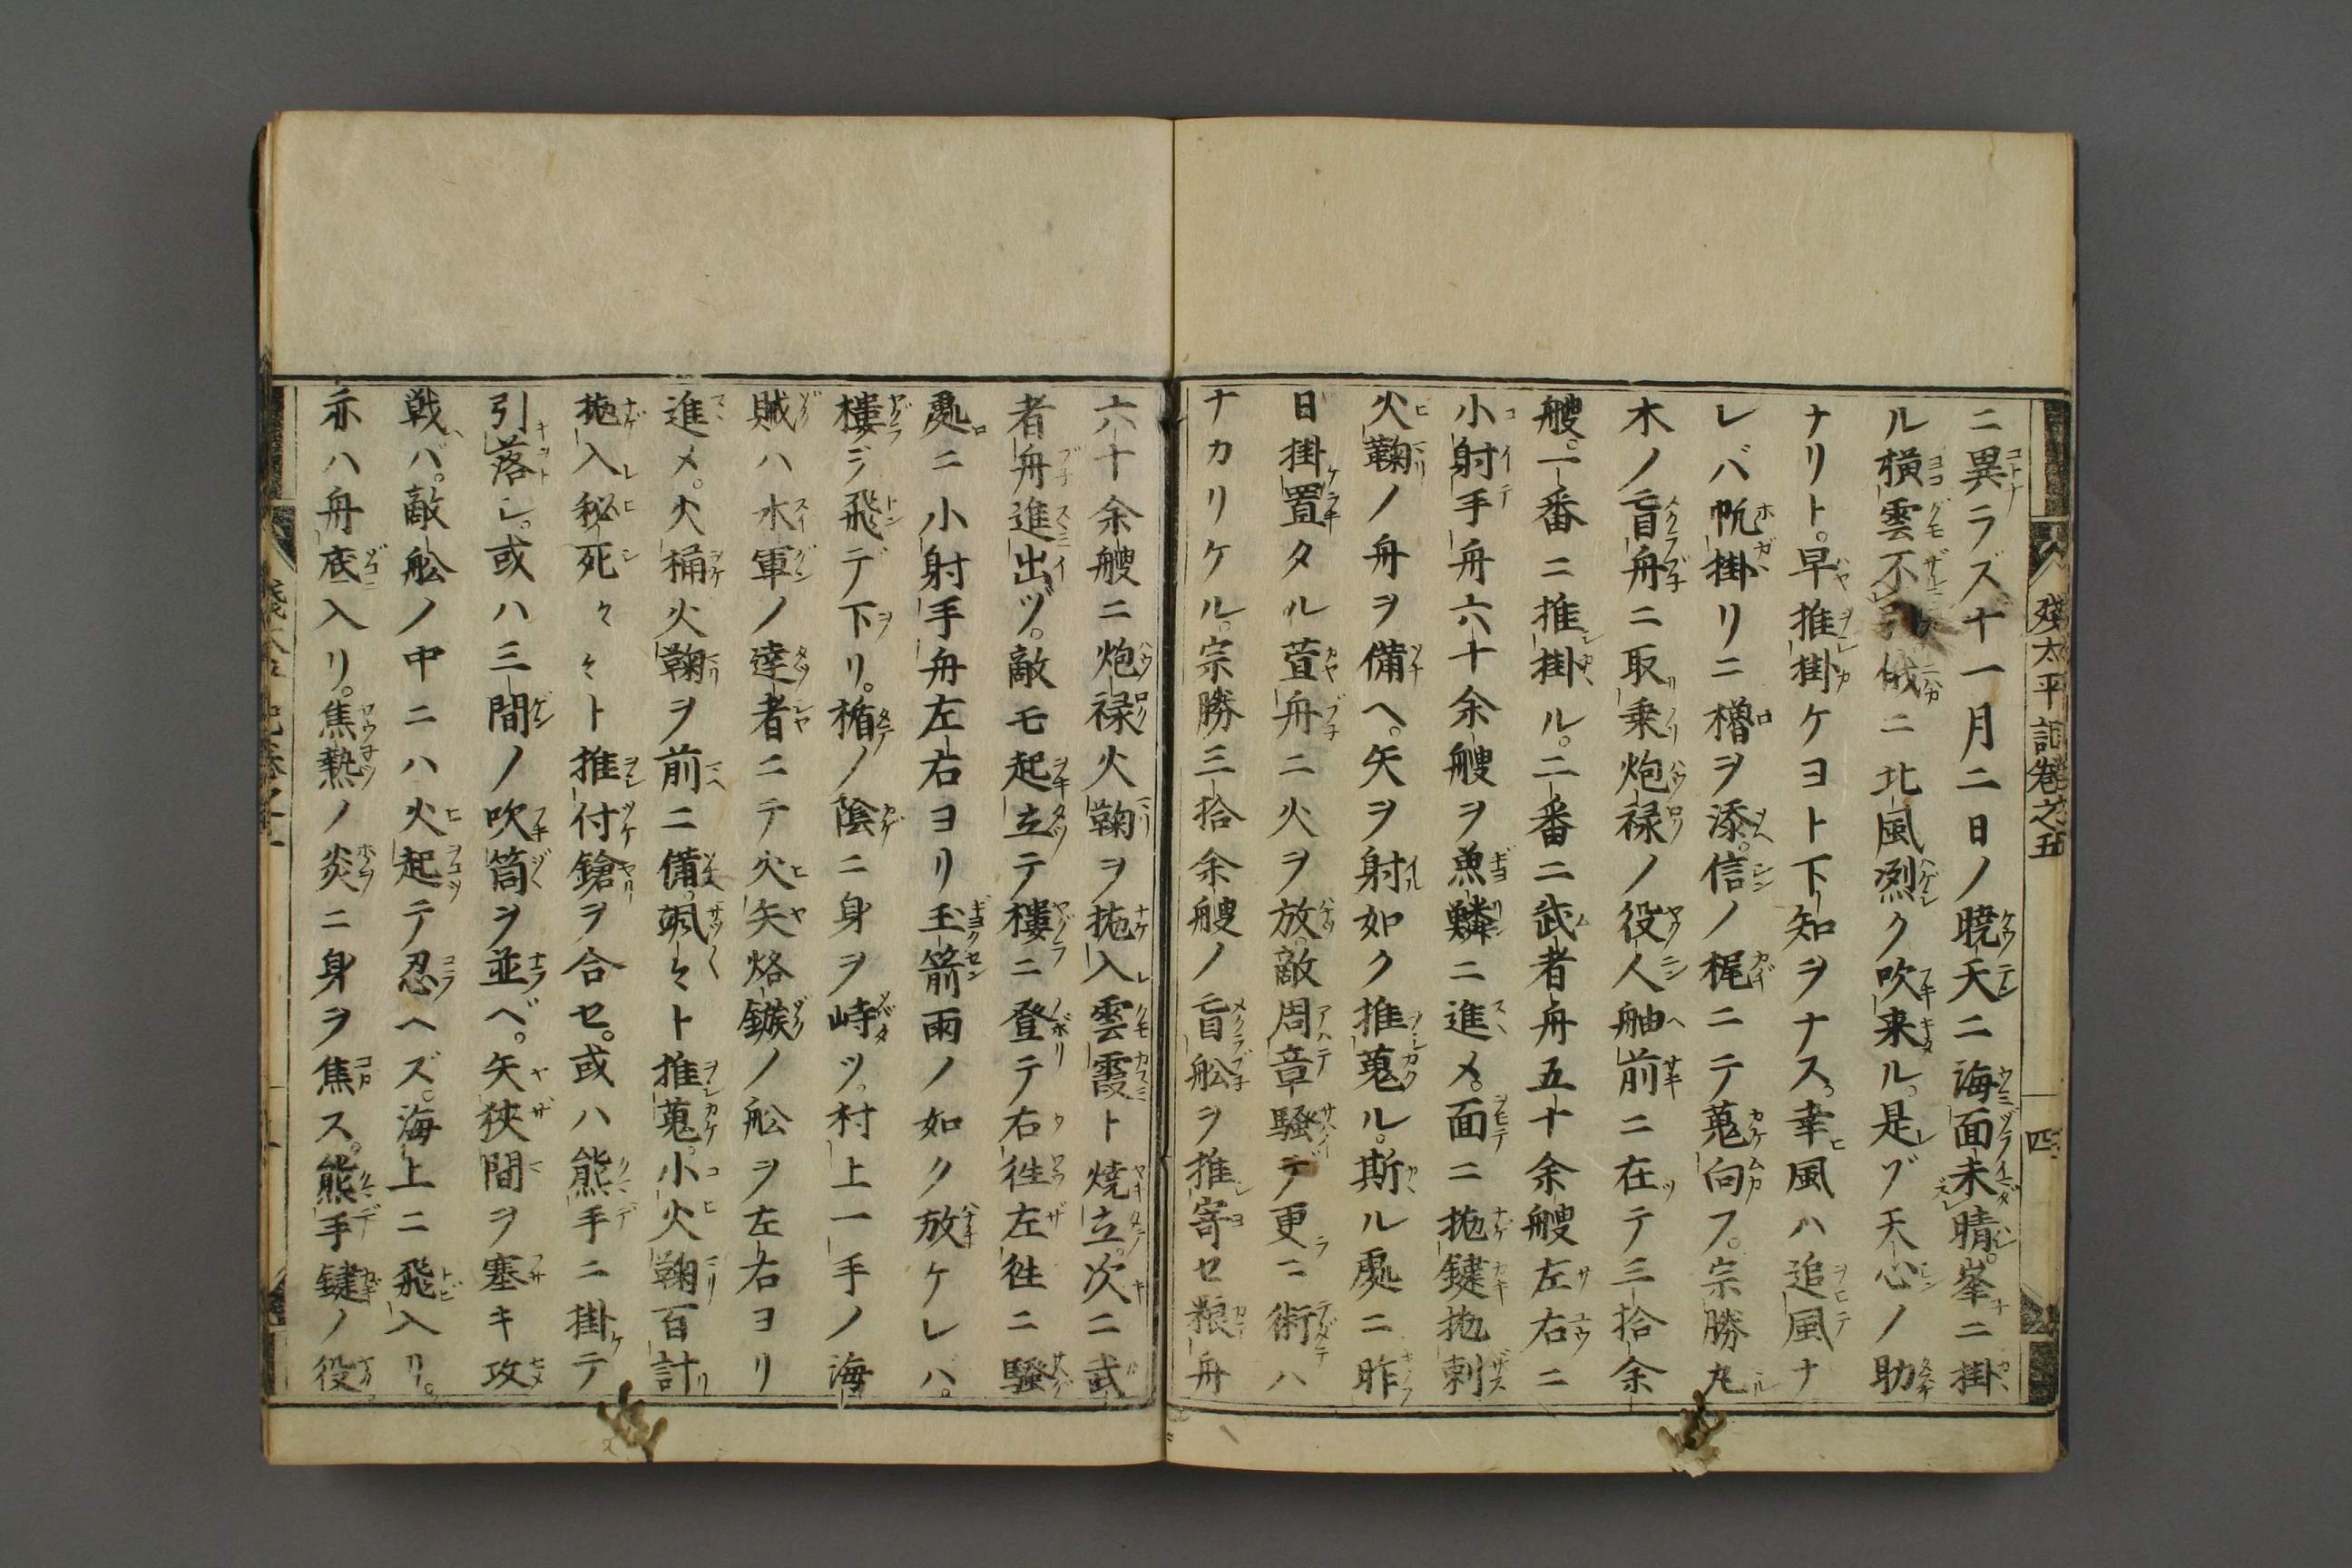 残太平記巻之五
四
ニ異ラズ十一月二日ノ暁天ニ海面未晴。峯ニ掛
ル横雲不俄ニ北風烈ク吹来ル。是ゾ天心ノ助
ナリト。早推掛ケヨト下知ヲナス。幸風ハ追風ナ
レバ帆掛リニ櫓ヲ添。信ノ梶ニテ蒐向フ。宗勝丸
木ノ盲舟ニ取乗炮禄ノ役人舳前ニ在テ三拾余
艘。一番ニ推掛ル。二番ニ武者舟五十余艘左右ニ
小射手舟六十余艘ヲ魚鱗ニ進メ。面ニ抛鍵抛刺
火鞠ノ舟ヲ備ヘ。矢ヲ射如ク推蒐ル。斯ル処ニ昨
日掛置タル萱舟ニ火ヲ放。敵周章騒デ更ニ術ハ
ナカリケル。宗勝三拾余艘ノ盲舩ヲ推寄セ粮舟
六十余艘ニ炮禄火鞠ヲ抛入雲霞ト焼立。次ニ武
者舟進出ヅ。敵モ起立テ櫻ニ登テ右徃左徃ニ騒
処ニ小射手舟左右ヨリ玉箭雨ノ如ク放ケレバ。
樓ヲ飛デ下リ。楯ノ陰ニ身ヲ峙ツ。村上一手ノ海
賊ハ水軍ノ達者ニテ火矢烙鏃ノ舩ヲ左右ヨリ
進メ。火桶火鞠ヲ前ニ備。颯々ト推蒐。小火鞠百計
抛入秘死々々ト推付鎗ヲ合セ。或ハ熊手ニ掛テ
引落シ。或ハ三間ノ吹筒ヲ並ベ。矢狭間ヲ塞キ攻
戦バ。敵舩ノ中ニハ火起テ忍ヘズ。海上ニ飛入リ。
亦ハ舟底入リ。焦熱ノ炎ニ身ヲ焦ス。熊手鍵ノ役